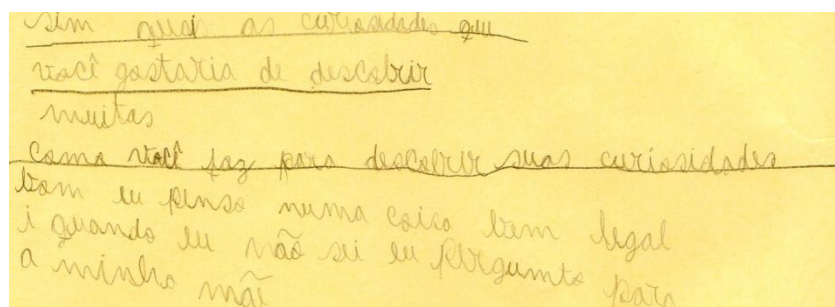 sim quai as curiosidades qu
você gostaria de descobrir
muitas
como você faz para descobrir suas curiosidades
bom eu penso numa coisa bem legal
i quando eu não sei eu pergumto para
a minha mãe